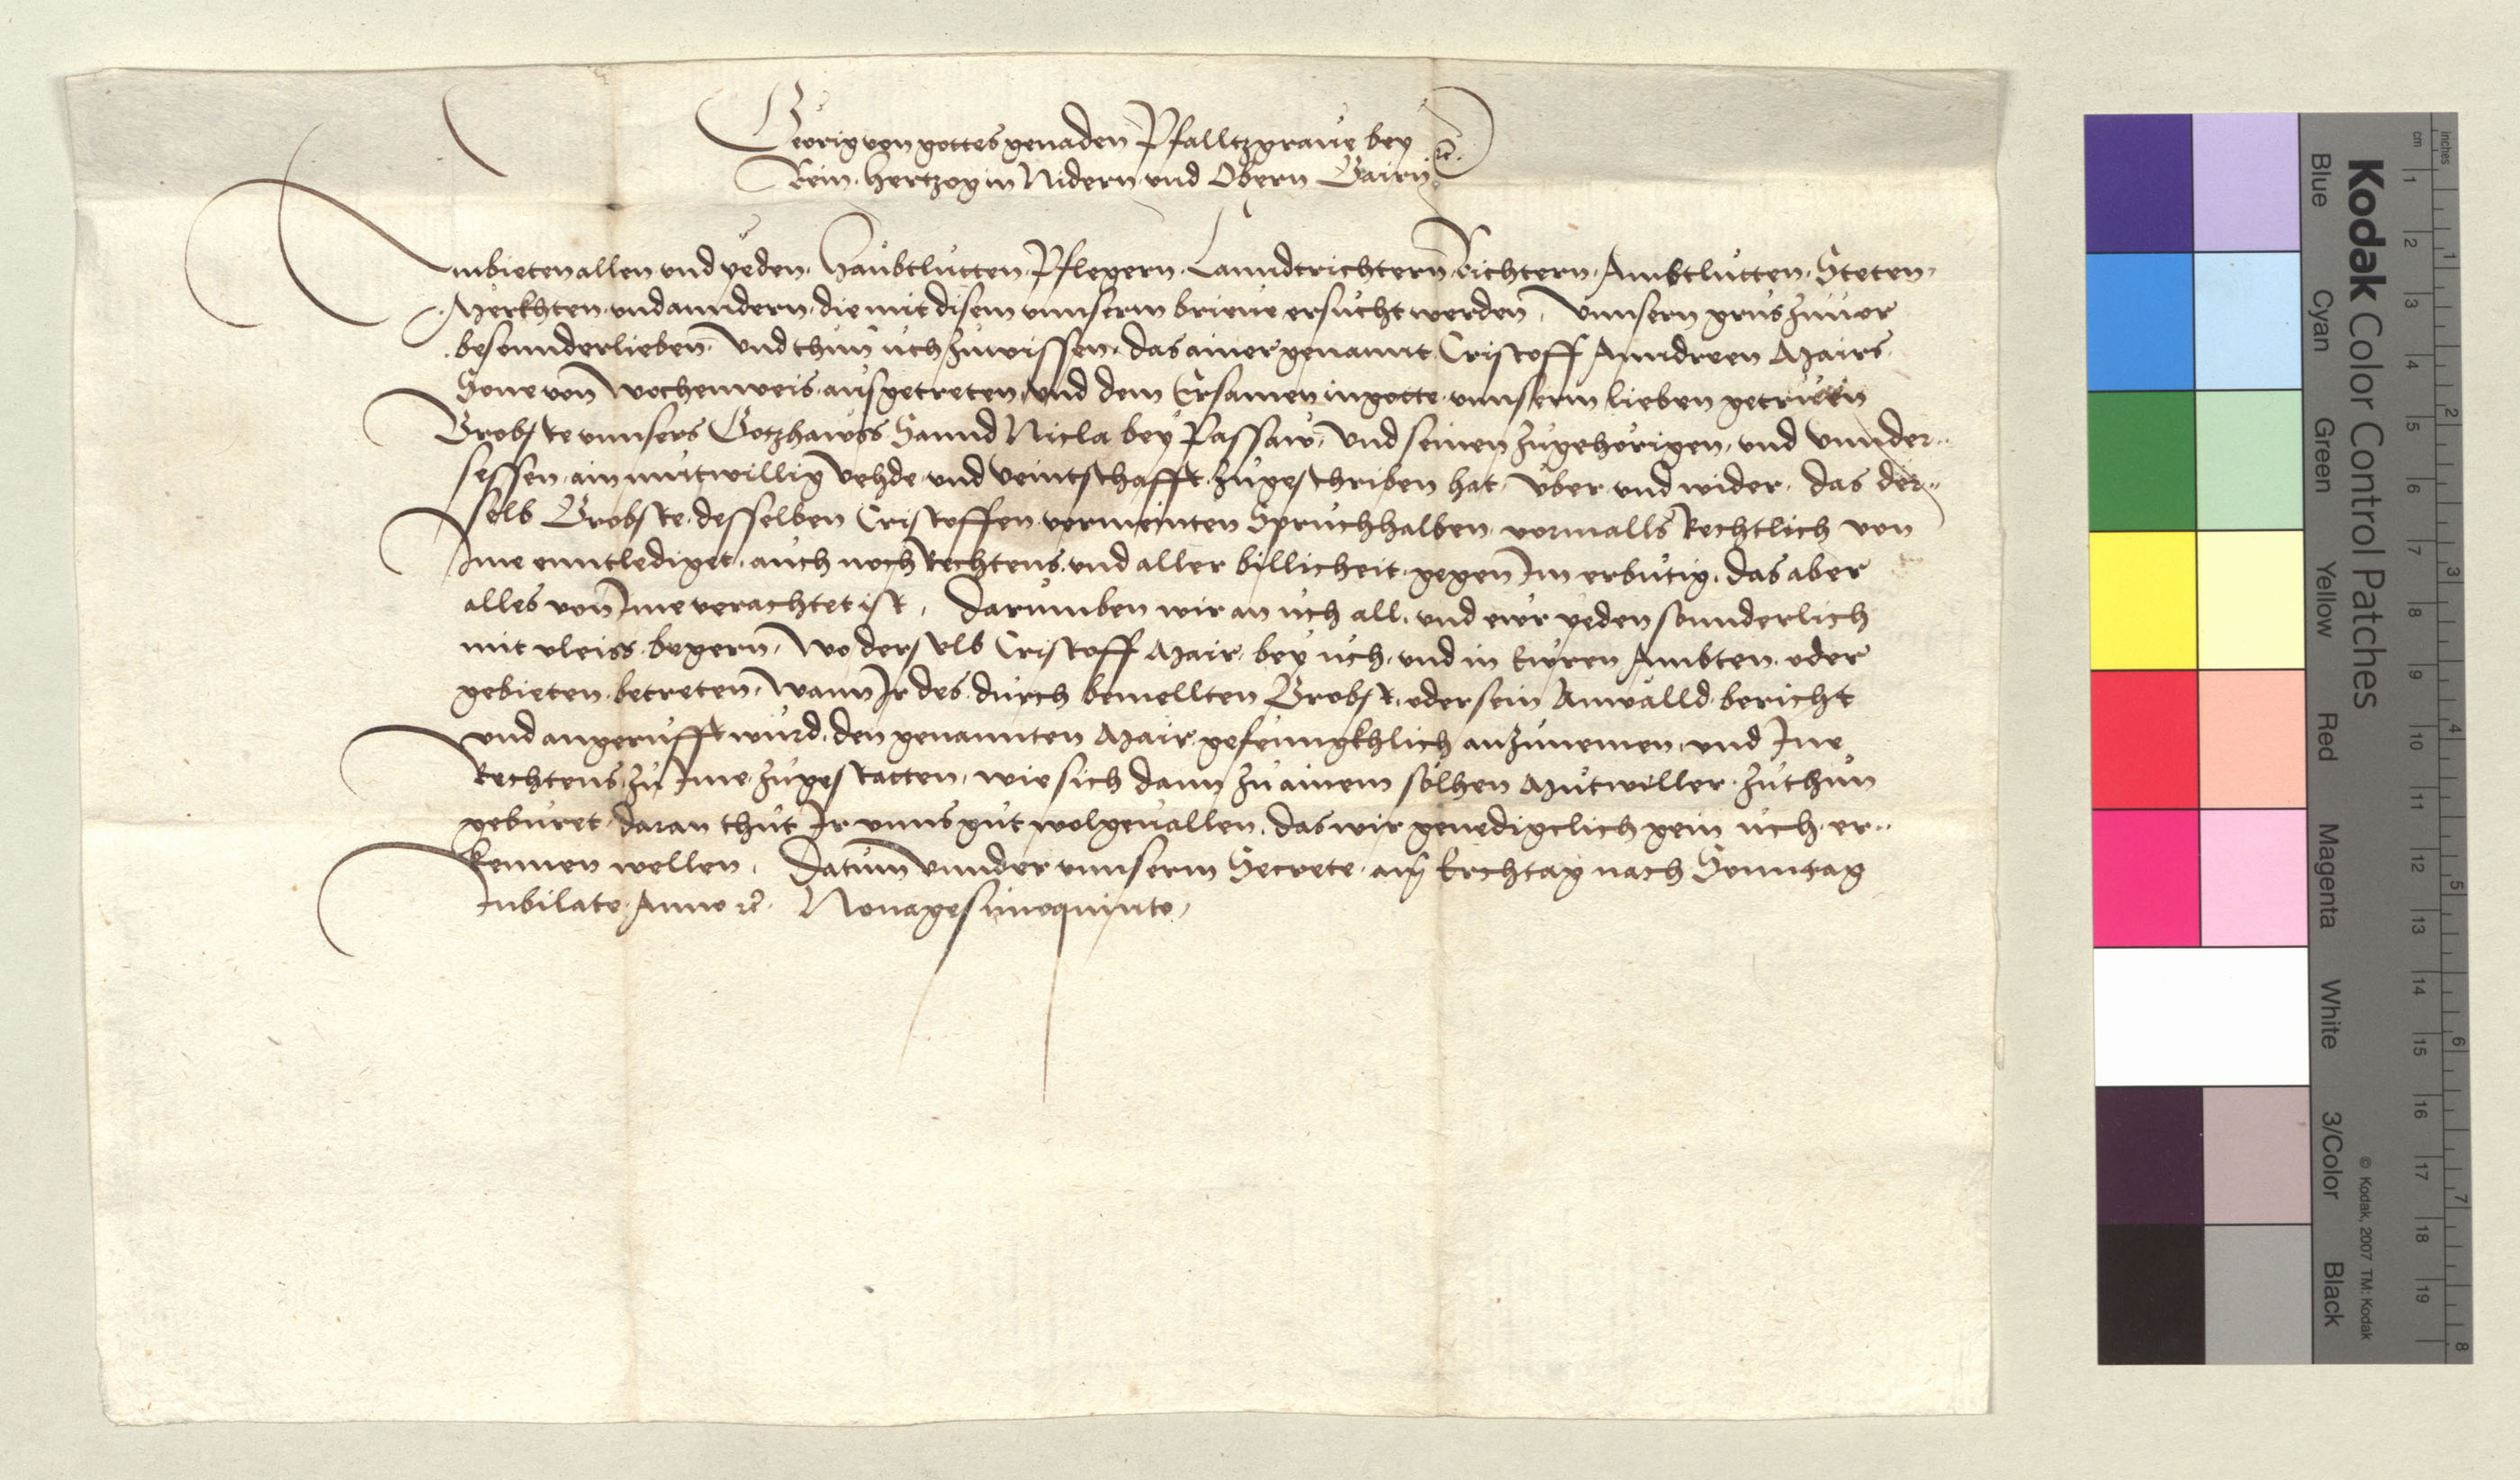 Georig von gottes genaden Pfalltzgraue bey
Rein. Hertzog in Nidern vnd Obern Bairn ꝛc.
Embieten allen vnd yeden. Haubtlütten. Pflegern. Lanndtrichtern Richtern. Ambtlütten. Steten.
Merkhten. vnd anndern. die mit disem vnnserm brieue ersucht werden. Vnnsern grus zuuor
besonnderlieben. Vnd thun üch zuwissen. das ainer genannt Cristoff Anndreen Mairs
Sone von Wochenweis ausgetreten, vnd dem Ersamen in gotte vnnserm lieben getrüen
Brobste vnnsers Gotzhawss Sannd Nicla bey Passaw, vnd seinen zugehörigen, vnd vnnder..
sessen. ain mutwillig Vehde vnd veintschafft zugeschriben hat, vber vnd wider. das der..
selb Brobste. desselben Cristoffen vermeinten Spruchhalben vormalls Rechtlich von
Ime enntlediget. auch noch Rechtens. vnd aller billicheit. gegen Im erbütig. das aber
alles von Ime verachtet ist. Darumben wir an üch all. vnd ewr yeden sonnderlich
mit vleiss begern, Wo derselb Cristoff Mair. bey üch. vnd in Ewren Ambten. oder
gebieten. betreten, Wann Ir des durch bemellten Brobst. oder sein Anwälld bericht
vnd angerufft würd, den genannten Mair. gefenngkhlich anzunemen, vnd Ine
Rechtens zu Ime zugestatten, wie sich dann zu ainem sölhen Mutwiller zuthun
geburet. daran thut Ir vnns gut wolgeuallen. das wir genedigclich gein üch er..
kennen wellen. Datum vnnder vnnserm Secrete. am Erchtag nach Sonntag
Iubilate Anno ꝛc. Nonagesimoquinto
Kodak Color Control Patches
Blue Cyan Green Yellow Red Magenta White 3/Color Black
© Kodak, 2007 TM: Kodak
cm 1 2 3 4 5 6 7 8 9 10 11 12 13 14 15 16 17 18 19
inches 1 2 3 4 5 6 7 8